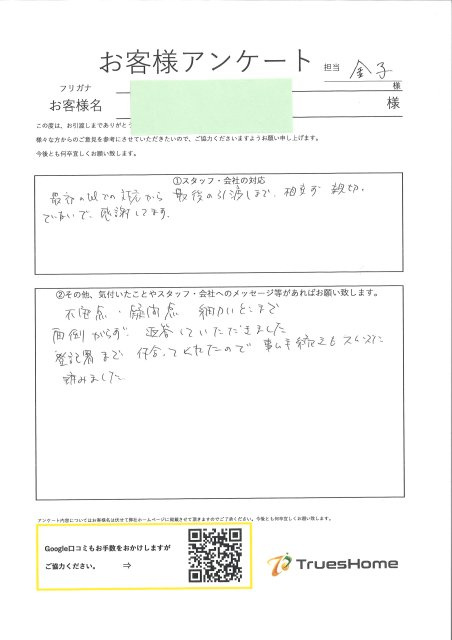 お客様アンケート
担当 金子
フリガナ 様
お客様名 様
この度は、お引渡しまでありがとう
様々な方からのご意見を参考にさせていただきたいので、ご協力くださいますようお願い申し上げます。
今後とも何卒宜しくお願い致します。
①スタッフ・会社の対応
最初の での対応から 最後の引渡しまで、相変わらず 親切、
ていねいで、感謝してます。
②その他、気付いたことやスタッフ・会社へのメッセージ等があればお願い致します。
不安点・疑問点 細かいとこまで
面倒がらず、返答していただきました
登記署まで 付合ってくれたので 事ム手続きも スムーズに
済みました
アンケート内容についてはお客様名は伏せて弊社ホームページに掲載させて頂きますのでご了承ください。今後とも何卒宜しくお願い致します。
Google口コミもお手数をおかけしますが
ご協力ください。 ⇒
TruesHome